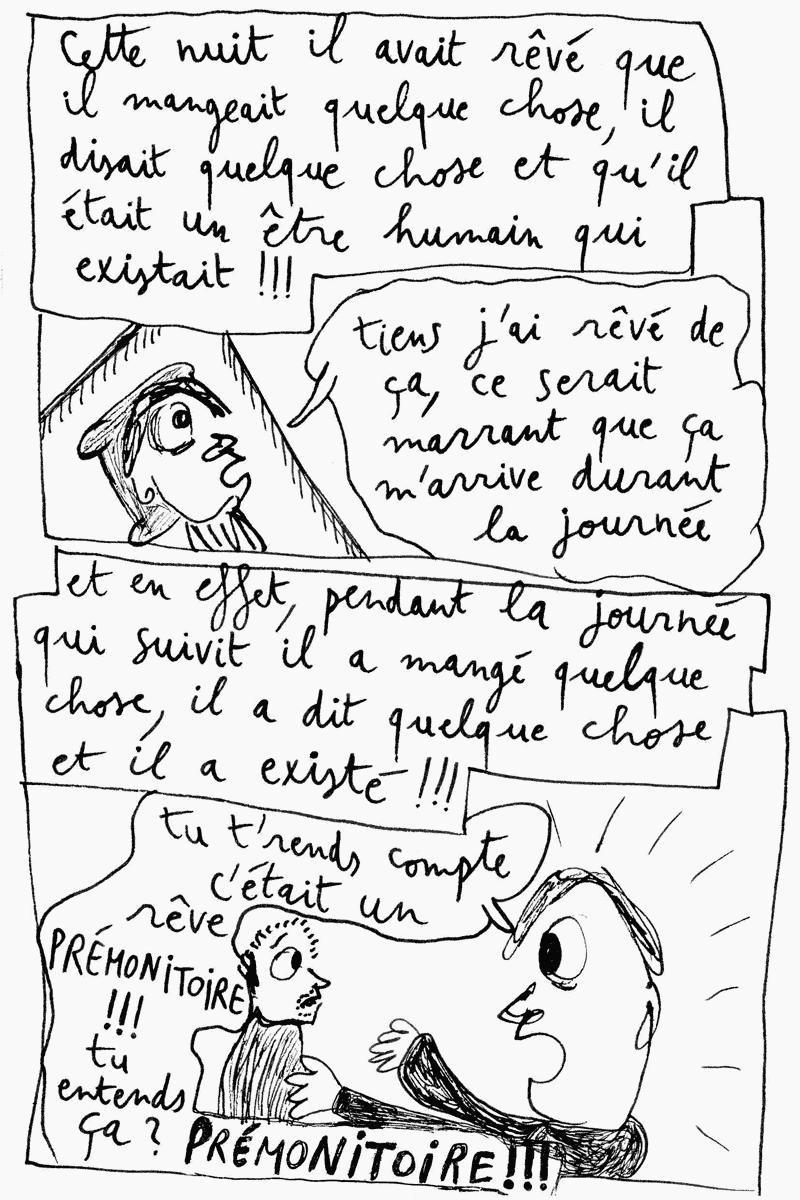 Cette nuit il avait rêvé que
il mangeait quelque chose, il
disait quelque chose et qu'il
était un être humain qui
existait !!!
tiens j'ai rêvé de
ça, ce serait
marrant que ça
m'arrive durant
la journée
et en effet, pendant la journée
qui suivit il a mangé quelque
chose, il a dit quelque chose
et il a existé !!!
tu t'rends compte
c'était un
rêve
PRÉMONITOIRE
!!!
tu
entends
ça ?
PRÉMONITOIRE !!!